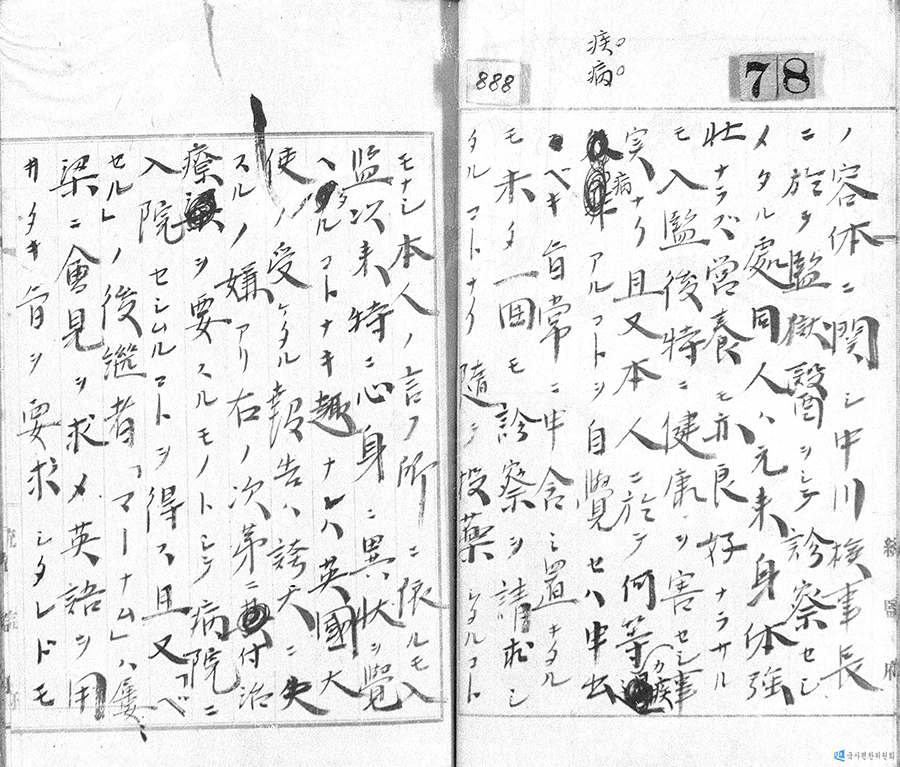 疾。
病。
888
78
ノ容体ニ関シ中川検事長
ニ於テ監獄醫ヲシテ診察セシ
メタル處同人ハ元来身体強
壮ナラズ営養モ亦良好ナラサル
モ入監後特ニ健康ヲ害セシ事
実ナク且又本人ニ於テ何等カ疾
病アルコトヲ自覺セハ申出
ベキ旨常ニ申含ミ置キタル
モ未タ一囘モ診察ヲ請求シ
タルコトナク随テ投薬シタルコト
モナシ本人ノ言フ所ニ依ルモ入
監以来特ニ心身ニ異状ヲ覺
ヘタルコトナキ趣ナレハ英國大
使ノ受ケタル報告ハ誇大ニ失
スルノ嫌アリ右ノ次第ニ付治
療ヲ要スルモノトシテ病院ニ
入院セシムルコトヲ得ス且又「ベ
セル」ノ後継者「マーナム」ハ屢々
梁ニ會見ヲ求メ英語ヲ用
井タキ旨ヲ要求シタレドモ
統監府
統監府
국사편찬위원회